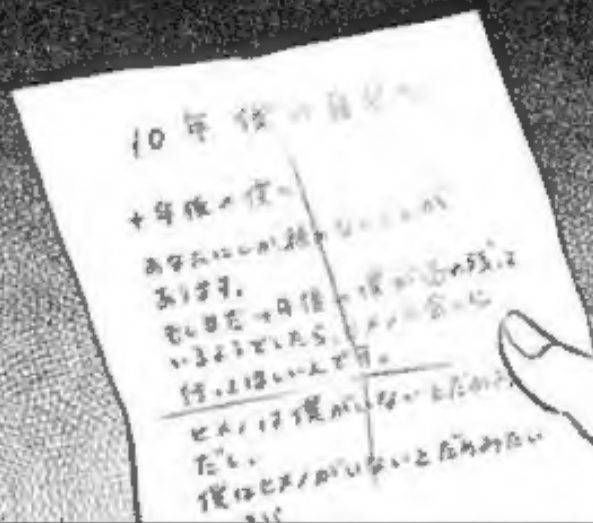 10年後の自分へ
十年後の僕へ
あなたにしか頼めないことが
あります。
もしまだ十年後の僕が売れ残って
いるようでしたら、ヒメノに会いに
行ってほしいんです。
ヒメノは僕がいないとだめだし
だし、
僕はヒメノがいないとだめみたい